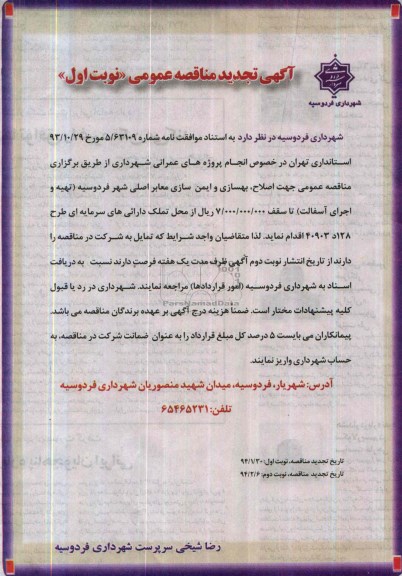 آگهی تجدید مناقصه عمومی «نوبت اول»
شهرداری فردوسیه
شهرداری فردوسیه در نظر دارد به استناد موافقت نامه شماره ۵/۶۳۱۰۹ مورخ ۹۳/۱۰/۲۹
استانداری تهران در خصوص انجام پروژه های عمرانی شهرداری از طریق برگزاری
مناقصه عمومی جهت اصلاح، بهسازی و ایمن سازی معابر اصلی شهر فردوسیه (تهیه و
اجرای آسفالت) تا سقف ۷/۰۰۰/۰۰۰/۰۰۰ ریال از محل تملک دارائی های سرمایه ای طرح
۱۲۸د ۴۰۹۰۳ اقدام نماید. لذا متقاضیان واجد شرایط که تمایل به شرکت در مناقصه را
دارند از تاریخ انتشار نوبت دوم آگهی ظرف مدت یک هفته فرصت دارند نسبت به دریافت
اسناد به شهرداری فردوسیه (امور قراردادها) مراجعه نمایند. شهرداری در رد یا قبول
ParsNamadData
کلیه پیشنهادات مختار است. ضمنا هزینه درج آگهی بر عهده برندگان مناقصه می باشد.
پیمانکاران می بایست ۵ درصد کل مبلغ قرارداد را به عنوان ضمانت شرکت در مناقصه، به
حساب شهرداری واریز نمایند.
آدرس: شهریار، فردوسیه، میدان شهید منصوریان شهرداری فردوسیه
تلفن: ۶۵۴۶۵۲۳۱
تاریخ تجدید مناقصه، نوبت اول: ۹۴/۱/۳۰
تاریخ تجدید مناقصه، نوبت دوم: ۹۴/۲/۶
رضا شیخی سرپرست شهرداری فردوسیه